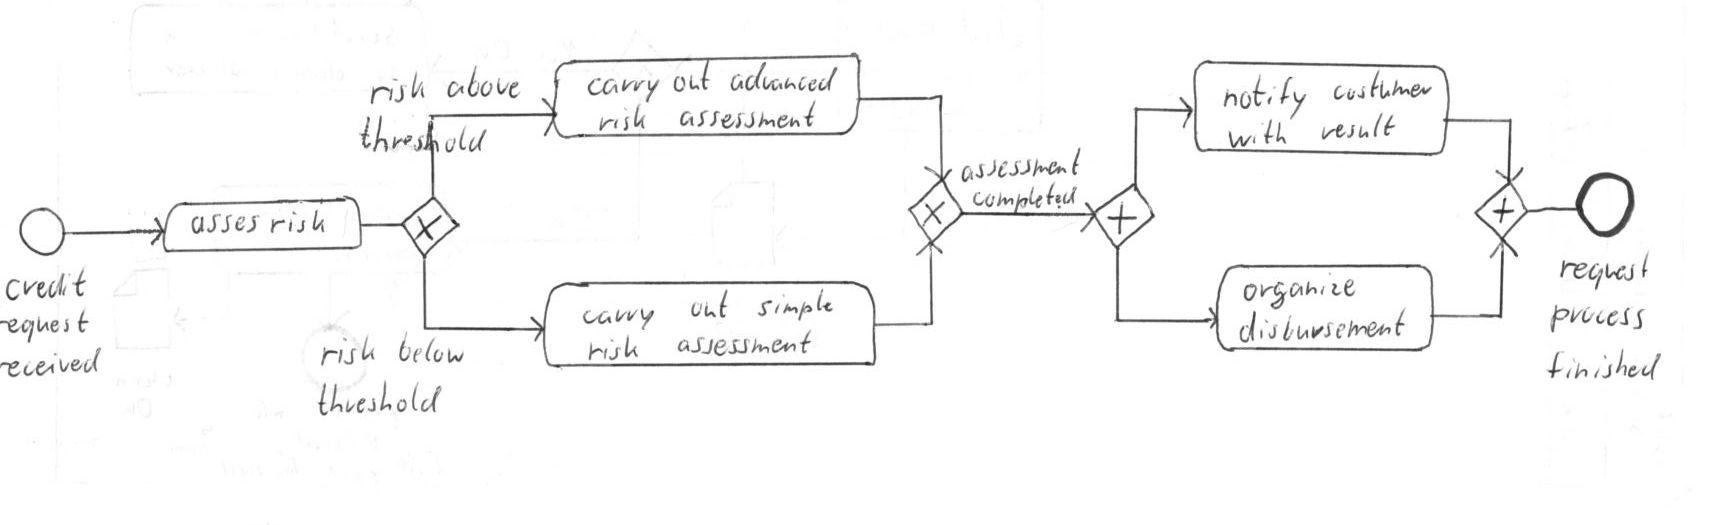 credit
request
received
asses risk
risk above
threshold
risk below
threshold
carry out advanced
risk assessment
carry out simple
risk assessment
assessment
completed
notify costumer
with result
organize
disbursement
request
process
finished